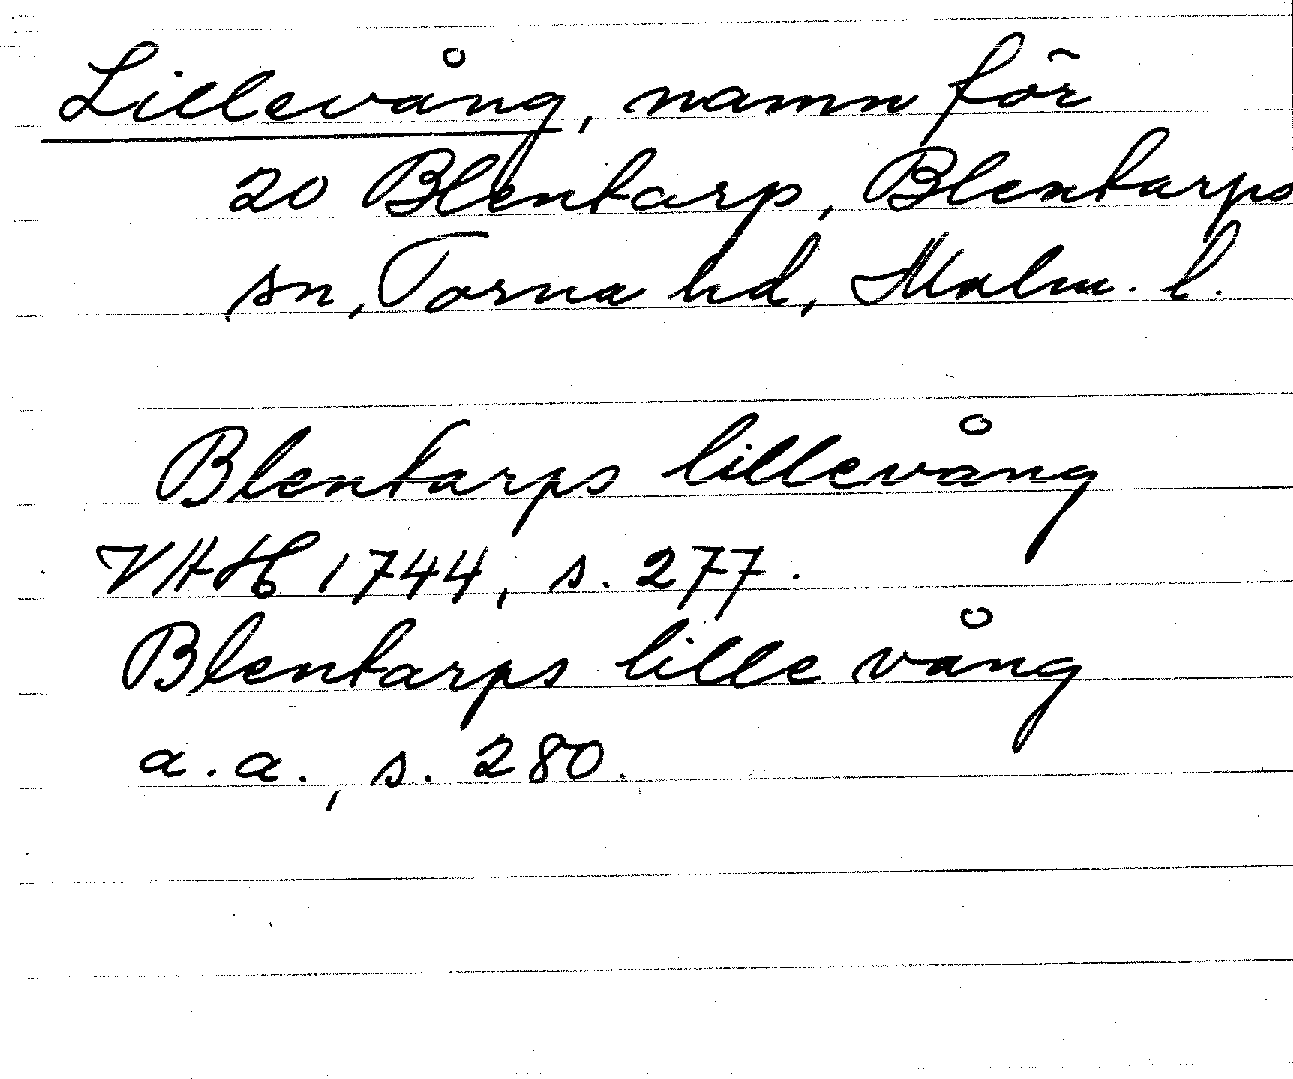 Lillevång, namn för
20 Blentarp, Blentarps
sn, Torna hd, Malm. l.
Blentarps lillevång
VHH 1744, s. 277.
Blentarps lille vång
a.a., s. 280.